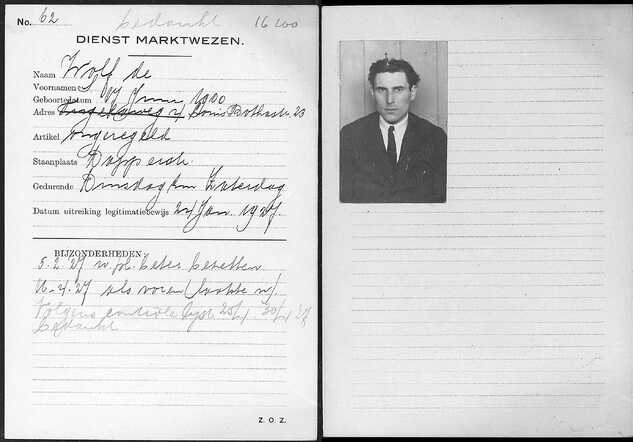 No. 62 bedankt 16100
DIENST MARKTWEZEN.
Naam Wolff de
Voornamen
Geboortedatum Juni 1900
Adres Louis Bothastr. 23
Artikel ongeregeld
Staanplaats Dapperstr.
Gedurende Dinsdag t/m Zaterdag
Datum uitreiking legitimatiebewijs 24 Jan. 1927.
BIJZONDERHEDEN:
5.2.27 w. pl. beter bezetten
16-4-27 als voren
Volgens controle lijst 25/4 30/4 27
bedankt
Z. O. Z.